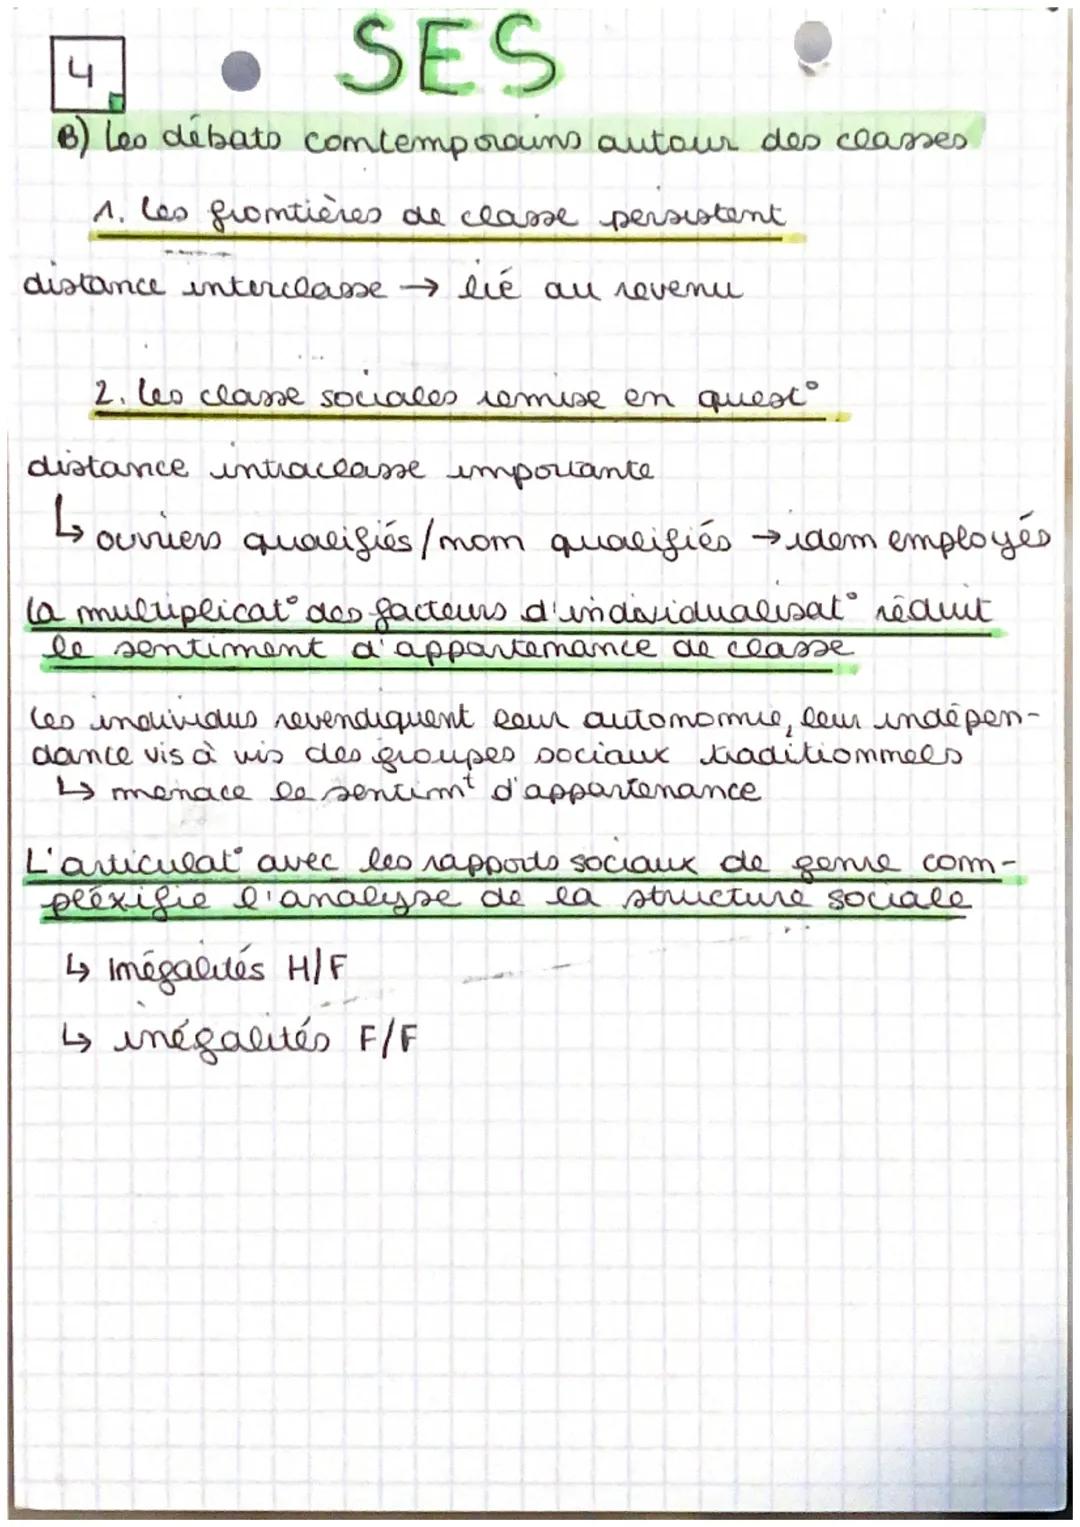 SES
4
B) Les débats contemporains autour des classes
1. Les frontières de classe persistent
distance interclasse → lié au revenu
2. Les classe sociales remise en quest°
distance intraclasse importante
↳ ouvriers qualifiés/non qualifiés → idem employés
La multiplicat° des facteurs d'individualisat° réduit
le sentiment d'appartenance de classe
Les individus revendiquent leur autonomie, leur indépen-
dance vis à vis des groupes sociaux traditionnels
↳ menace le sentimt d'appartenance
L'articulat° avec les rapports sociaux de genre com-
pléxifie l'analyse de la structure sociale
↳ Inégalités H/F
↳ inégalités F/F